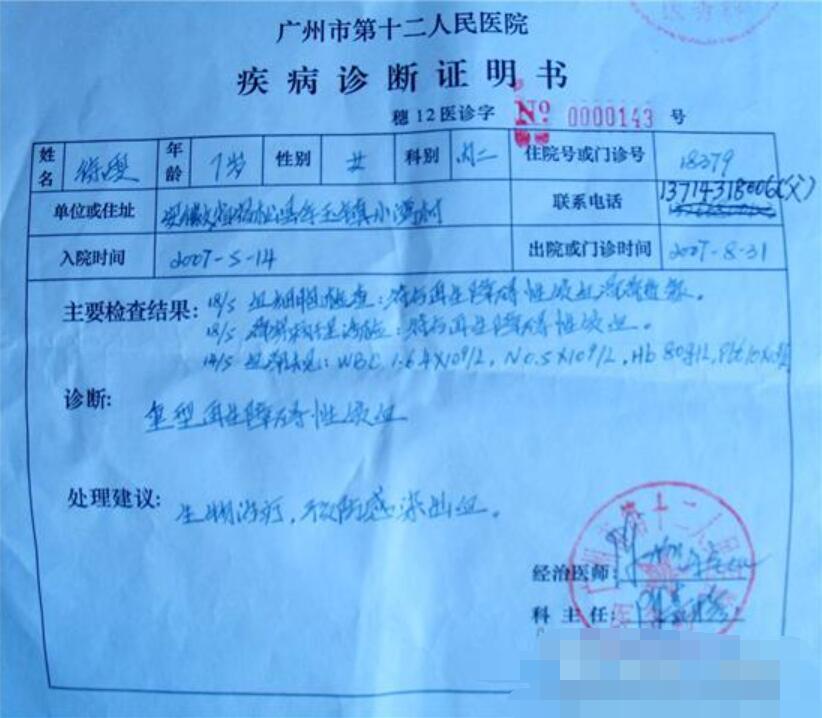 广州市第十二人民医院
疾病诊断证明书
穗12医诊字 No 0000143 号
姓名 年龄 7岁 性别 女 科别 内二 住院号或门诊号 18379
单位或住址 安徽省 联系电话 13714318006(父)
入院时间 2007-5-14 出院或门诊时间 2007-8-31
主要检查结果: 18/5 血细胞检查:符合再生障碍性贫血
18/5 符合再生障碍性贫血。
14/5 WBC 1.64X10^9/L, N 0.5X10^9/L, Hb 80g/L,
诊断: 重型再生障碍性贫血
处理建议: 生物治疗,预防感染出血。
经治医师:
科主任: